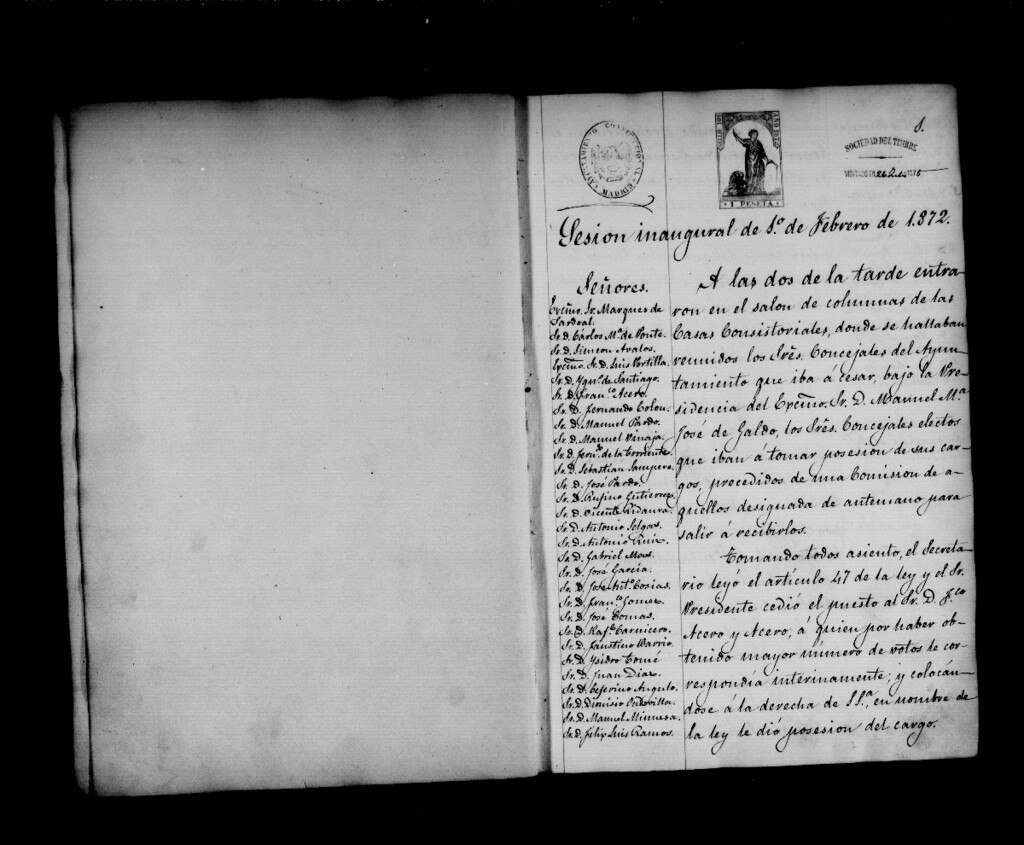 AYUNTAMIENTO CONSTITUCIONAL
MADRID
1 PESETA
SOCIEDAD DEL TIMBRE
1.
Sesion inaugural de 1.º de Febrero de 1.872.
Señores.
Excmo. Sr. Marques de
Sardoal.
Sr. D. Cárlos Mª de Ponte.
Sr. D. Simeon Avalos.
Excmo. Sr. D. Luis Portilla.
Sr. D. Ygnº de Santiago.
Sr. D. Franco Acero.
Sr. D. Fernando Colon.
Sr. D. Manuel Pardo.
Sr. D. Manuel Vinaja.
Sr. D. Fernº de la Torriente.
Sr. D. Sebastian Sampere.
Sr. D. José Pardo.
Sr. D. Rufino Gutierrez.
Sr. D. Vicente Ridaura.
Sr. D. Antonio Selgas.
Sr. D. Antonio Ruiz.
Sr. D. Gabriel
Sr. D. José Garcia.
Sr. D. José Antº Cosias.
Sr. D. Franco Gomez.
Sr. D. José Comas.
Sr. D. Rafl Carnicero.
Sr. D. Faustino Barrio.
Sr. D. Ysidro Tomé
Sr. D. Juan Diaz.
Sr. D. Ceferino Angulo.
Sr. D. Dionisio
Sr. D. Manuel Minuesa.
Sr. D. Felip Luis Ramos.
A las dos de la tarde entra-
ron en el salon de columnas de las
Casas Consistoriales, donde se hallaban
reunidos los Srēs. Concejales del Ayun-
tamiento que iba á cesar, bajo la Pre-
sidencia del Excmo. Sr. D. Manuel Mª
José de Galdo, los Srēs. Concejales electos
que iban á tomar posesion de sus car-
gos, precedidos de una Comision de a-
quellos designada de antemano para
salir á recibirlos.
Tomando todos asiento, el Secreta-
rio leyó el artículo 47 de la ley y el Sr.
Presidente cedió el puesto al Sr. D. Fco
Acero y Acero, á quien por haber ob-
tenido mayor número de votos le cor-
respondia interinamente; y colocán-
dose á la derecha de S.Sª, en nombre de
la ley le dió posesion del cargo.